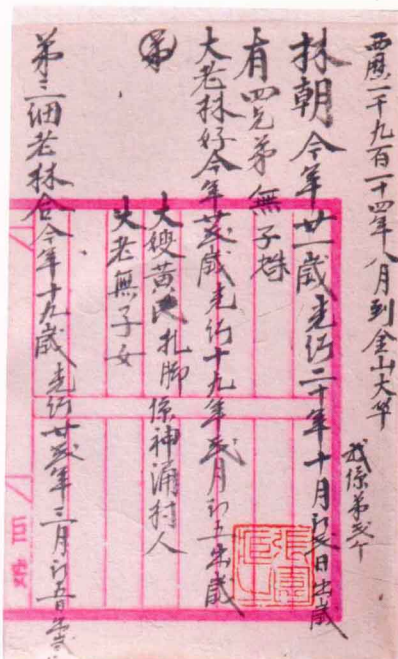 西曆一千九百一十四年八月到金山大埠
我係第弍個
林朝今年廿一歲光緒二十年十月初日出歲
有四兄弟無子姝
大老林好今年廿弍歲光緒十九年弍月初五出歲
大嫂黃氏扎脚係神涌村人
大老無子女
第
第三細老林合今年十九歲光緒廿弍年三月初五日出歲
巨安